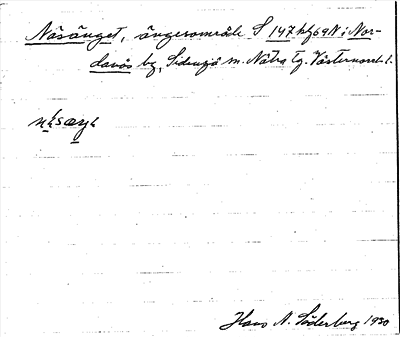 Näsänget, ängesområde S 147 hfg 69 N i Nor-
danås by, Sidensjö sn. Nätra tg. Västernorrl. l.
Hans N. Söderberg 1930